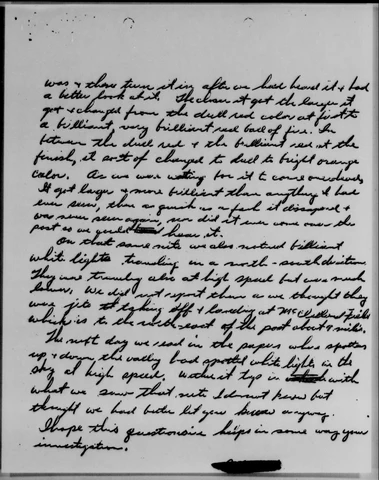 was & then turn it in after we had heard it & had
a better look at it. The closer it got the larger it
got & changed from the dull red color at first to
a brilliant, very brilliant red ball of fire. In
between the dull red & the brilliant red at the
finish, it sort of changed to dull to bright orange
color. As we were waiting for it to come over
It got larger & more brilliant than anything I had
ever seen, then as quick as a flash it disappeared &
was never seen again, nor did it ever come over the
post as we could hear it.
On that same nite we also noticed brilliant
white lights traveling in a north-south direction.
They were traveling also at high speed but was much
lower. We did not report them as we thought they
was jets taking off & landing at McClellan Field
which is to the north-east of the post about 9 miles.
The next day we read in the papers where spotters
up & down the valley had spotted white lights in the
sky at high speed. Wether it tys in with
what we saw that nite I do not know but
thought we had better let you know anyway.
I hope this questionaire helps in some way your
investigation.